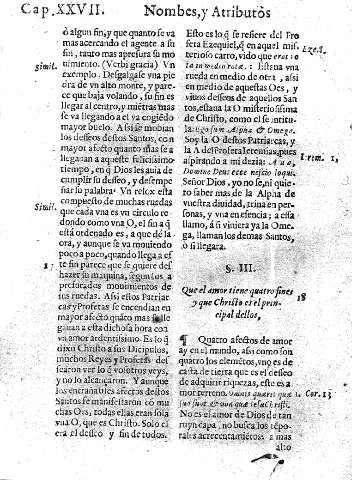 Cap. XXVII. Nombes, y Atributòs
ò algun fin, y que quanto se va
mas acercando el agente a su
fin, tanto mas apresura su mo
uimiento. (Verbi gracia) Vn
simil.
exemplo. Desgalgase vna pie
dra de vn alto monte, y pare-
ce que baja volando, su fin es
llegar al centro, y miétras mas
se va llegando a el va cogiédo
mayor buelo. Assi se mobian
los desseos destos Santos, con
mayor afecto quanto mas se a
llegauan a aqueste felicissimo
tiempo, en q̃ Dios les auia de
cumplir su desseo, y desempe
ñar su palabra. Vn relox esta
Simil.
compuesto de muchas ruedas
que cada vna es vn circulo re
dondo como vna O, el fin a q̃
está ordenado es, a que dé la
ora, y aunque se va mouiendo
poco a poco, quando llega a es
17
te fin parece que se quiere des
hazer su maquina, segun los a
presurados mouimientos de
sus ruedas. Assi estos Patriar
cas y Profetas se encendian en
mayor afecto quáto mas se lle
gauan a esta dichosa hora con
va amor ardentissimo. Es lo q̃
dixo Christo a sus Dicipulos,
muchos Reyes y Profetas des
searon ver lo q̃ vosotros veys,
y no lo alcançaron. Y aunque
los entrañables afectos destos
Santos se manifestaron có mu
chas Oes, todas ellas eran sola
vna O, que es Christo. Solo el
era el desseo y fin de todos.
Esto es lo q̃ se refiere del Pro
feta Ezequiel, q̃ en aquel mis
Ezec. 1.
terioso carro, vido que
Estaua vna
rueda en medio de otra, assi
en medio de aquestas Oes, y
viuos desseos de aquellos San
tos, estaua la O misteriosissima
de Christo, como el se intitu-
la: Ego sum Alpha & Omega.
Soy la O destos Patriarcas, y
la A del Profeta Ieremias, pues
Irem. 1.
aspirando a mi dezia: A a a,
Domine Deus ecce nescio loqui.
Señor Dios, yo no se, ni quie
ro saber mas de la Alpha de
vuestra diuidad, trina en per-
sonas, y vna en esencia; a essa
llamo, á si viniera ya la Ome
ga, llaman los demas Santos,
ò si llegara.
§. III.
Que el amor tiene quatro fines
18
y que Christo es el prin-
cipal dellos,
¶ Quatro afectos de amor
ay en el mundo, assi como son
quatro los elementos, vno es de
casta de tierra que es el desseo
de adquirir riquezas, este es a
mor terreno. Omnes quaerit quae
1. Cor. 13
sua sunt & non quae Iesu Christi.
No es el amor de Dios de tan
ruyn capa, no busca los tépo-
rales acrecentamiétos a mas
alto